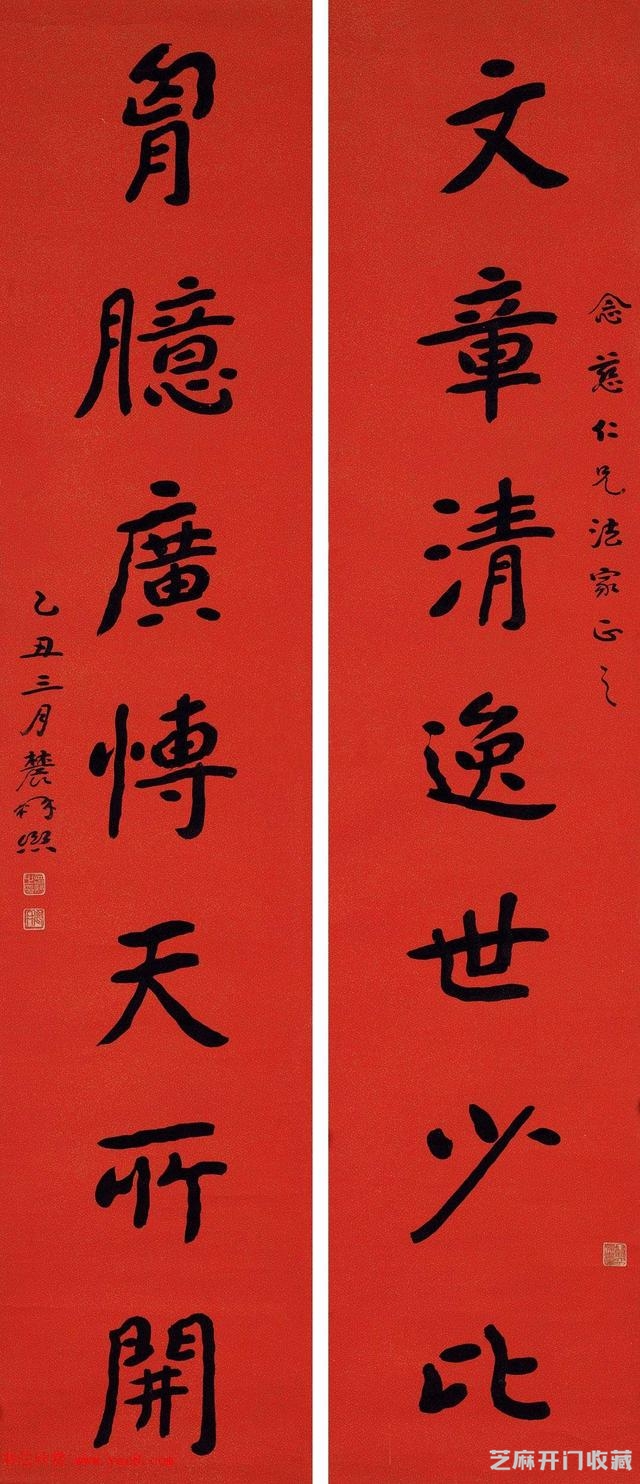 念慈仁兄法家正之
文章清逸世少比
胷臆廣愽天所開
乙丑三月農髯熙
www.yac8.com
芝麻开门收藏